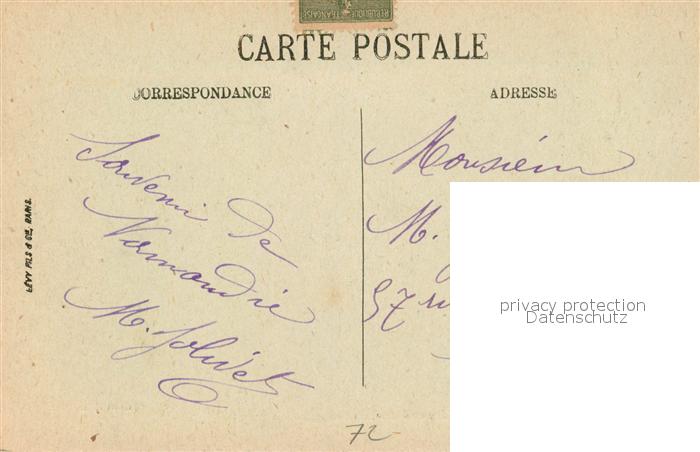 REPUBLIQUE FRANÇAISE
CARTE POSTALE
CORRESPONDANCE
ADRESSE
Souvenir de
Normandie
M. Jolivet
LÉVY FILS & Cie, PARIS.
Monsieur
M.
57 ru
privacy protection
Datenschutz
72